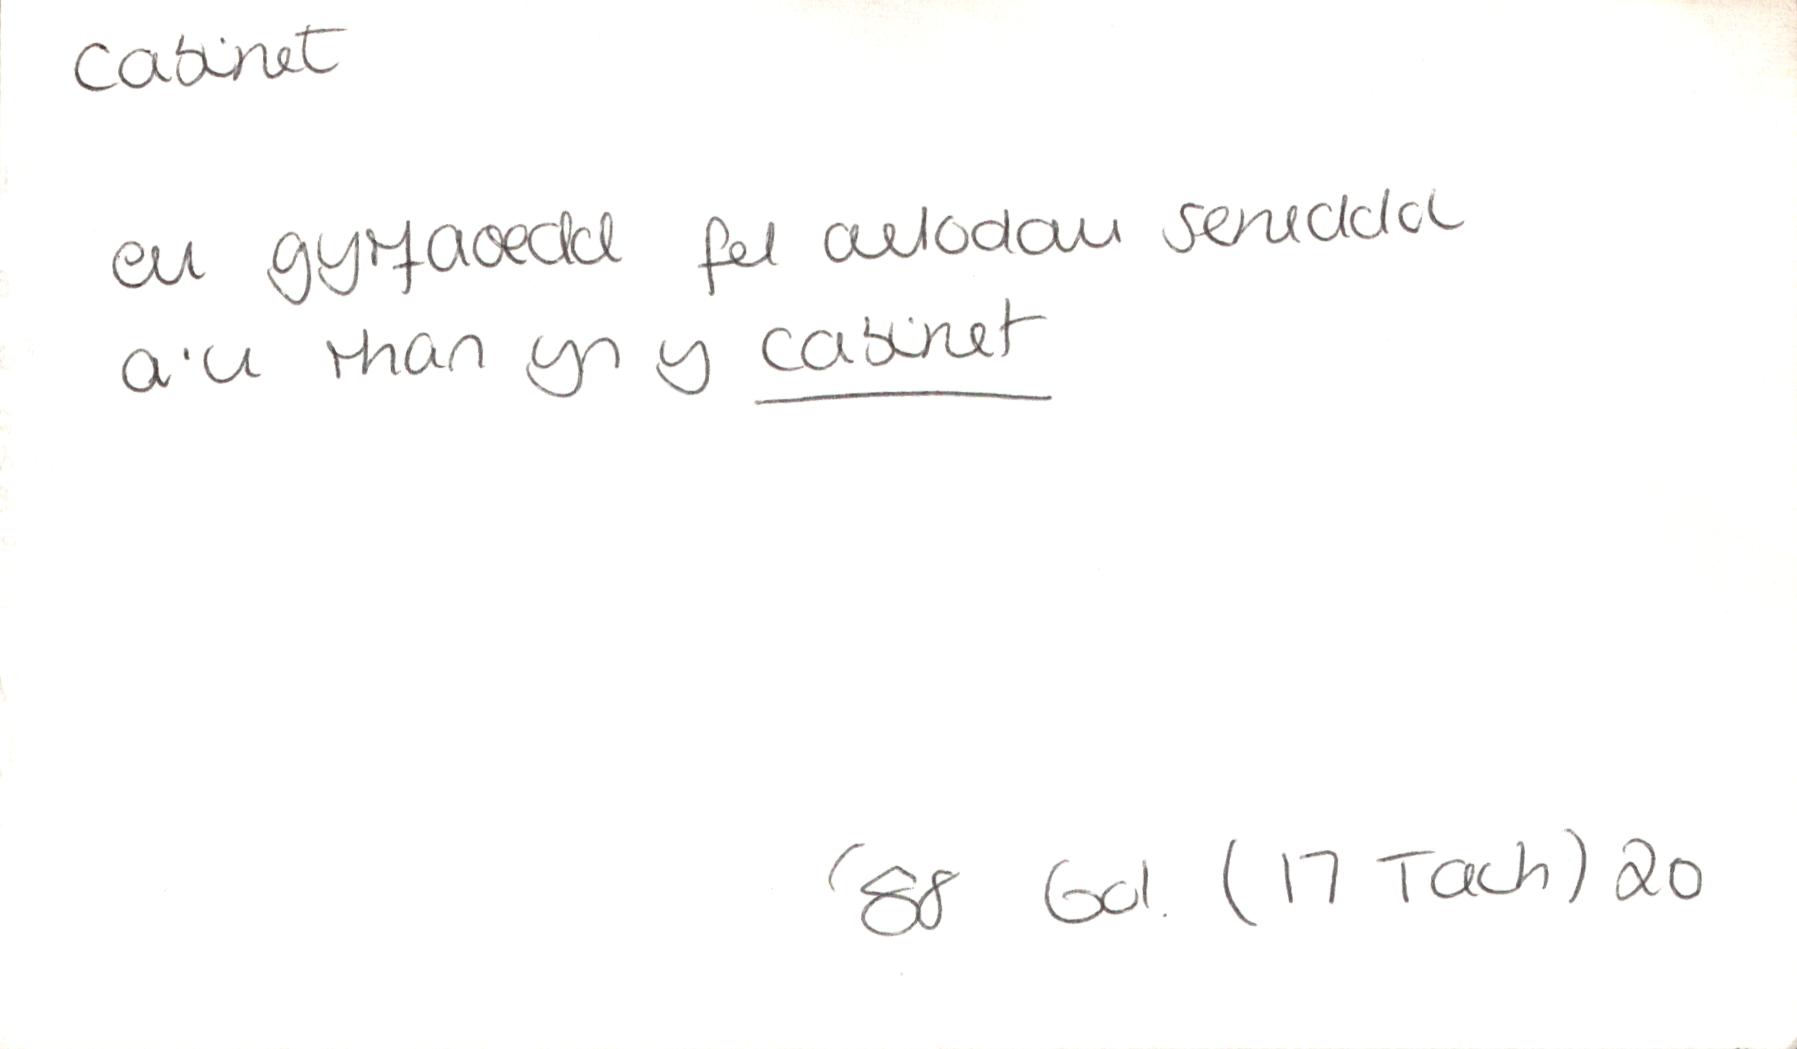 cabinet
eu gyrfaoedd fel aelodau seneddd
a'u rhan yn y cabinet
'88 Gol. (17 Tach) 20